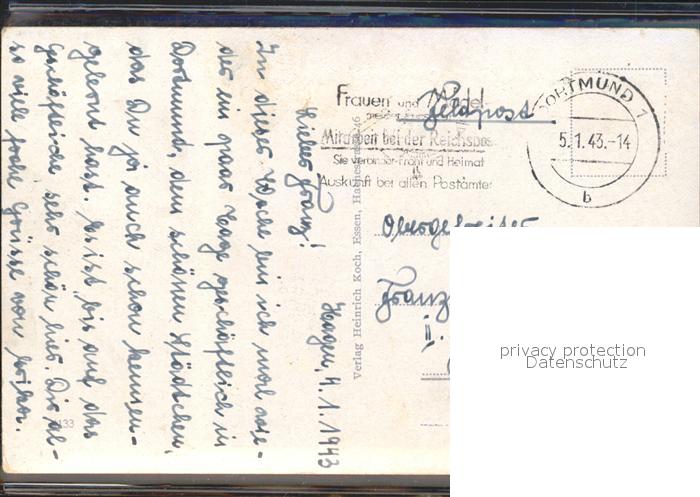 Hagen, 4.1.1943
Lieber Franz!
In dieser Woche bin ich mal wie-
der ein paar Tage geschäftlich in
Dortmund, dem schönen Städtchen,
das Du ja auch schon kennen-
gelernt hast. Es ist bis auf das
Geschäftliche sehr schön hier. Dir al-
so viele frohe Grüsse von
Verlag Heinrich Koch, Essen,
133
Frauen und Mädel
Mitarbeit bei der Reichspost
Sie verbindet Front und Heimat
Auskunft bei allen Postämter
DORTMUND 1
5.1.43.-14
b
Feldpost
Obergefreiter
Franz
privacy protection
Datenschutz